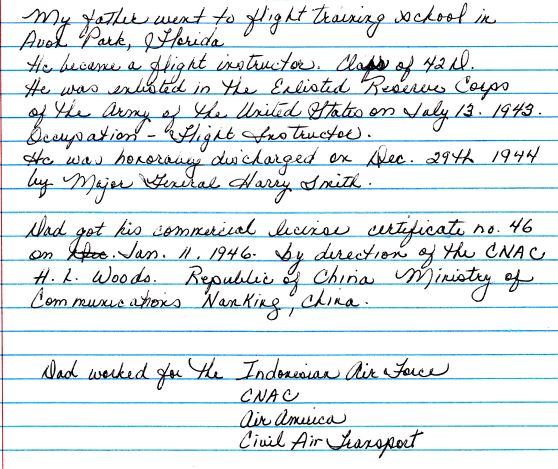 My father went to flight training school in
Avon Park, Florida
He became a flight instructor. Class of 42 D.
He was enlisted in the Enlisted Reserve Corps
of the Army of the United States on July 13. 1943.
Occupation - Flight Instructor.
He was honoraray discharged on Dec. 29th 1944
by Major General Harry Smith.
Dad got his commercial license certificate no. 46
on Jan. 11. 1946. by direction of the CNAC
H. L. Woods. Republic of China Ministry of
Communications NanKing, China.
Dad worked for the Indonesian Air Force
CNAC
Air America
Civil Air Transport